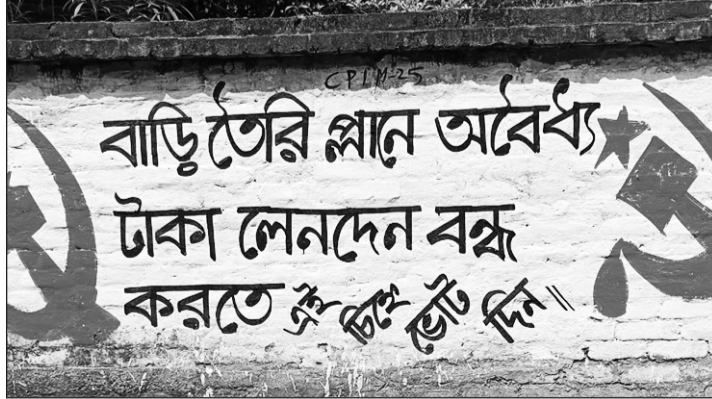 CPIM-25
বাড়ি তৈরি প্লানে অবৈধ্য
টাকা লেনদেন বন্ধ
করতে এই চিহ্নে ভোট দিন॥